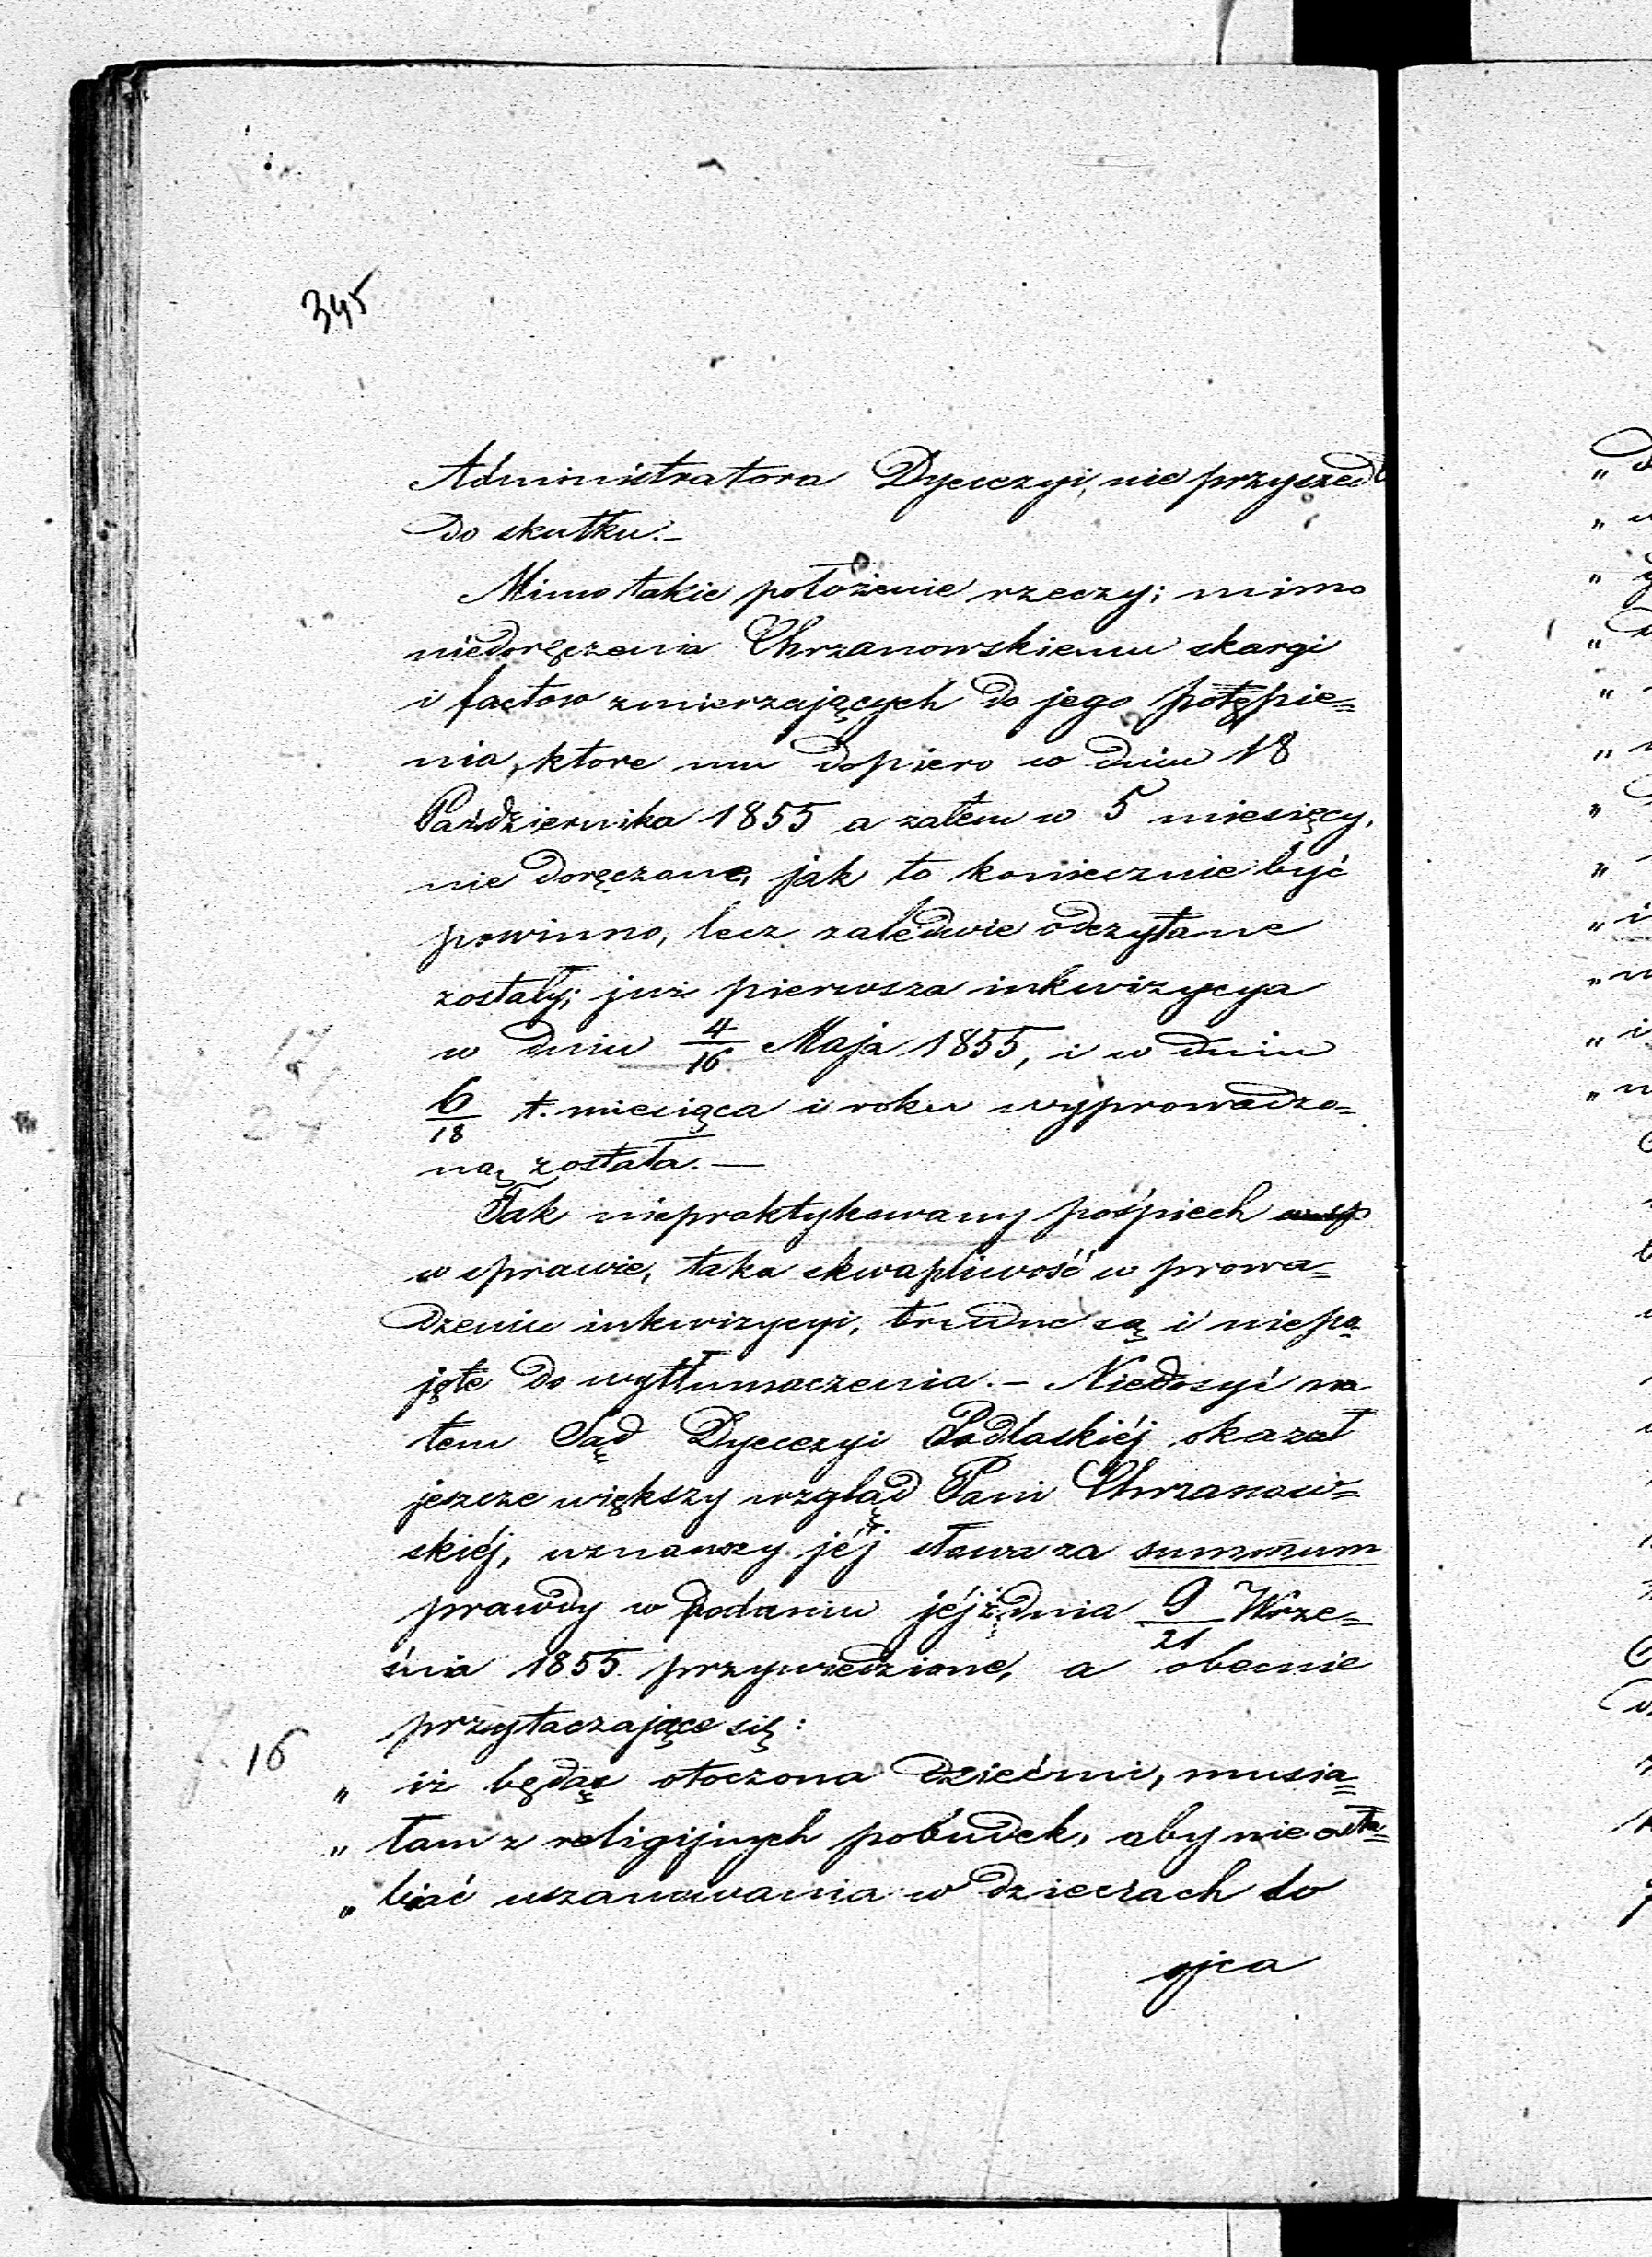 345
Administratora Dyecezyi, nie przyszedł
do skutku.—
Mimo takie położenie rzeczy; mimo
niedoręczenia Chrzanowskiemu skargi
i factow zmierzających do jego potępie=
nia, ktore mu dopiero w dniu 18
Października 1855 a zatem w 5 miesięcy,
nie doręczone, jak to koniecznie być
powinno, lecz zaledwie odczytane
zostały; już pierwsza inkwizycya
w dniu 4/16 Maja 1855, i w dniu
6/18 t. miesiąca i roku wyprowadzo=
ną została.—
Tak niepraktykowany pośpiech
w sprawie, taka skwapliwość w prowa=
dzeniu inkwizycyi, trudne są i niepo
jęte do wytłumaczenia.— Niedosyć na
tem Sąd Dyecezyi Podlaskiéj okazał
jeszcze większy wzgląd Pani Chrzanow=
skiéj, uznawszy jéj słowa za summum
prawdy w podaniu jéj z dnia 9/21 Wrze=
śnia 1855 przywiedzione, a obecnie
przytaczające się:
16
„ iż będąc otoczona dziećmi, musia=
„ łam z religijnych pobudek, aby nie osła=
„ biać uszanowania w dzieciach do
ojca